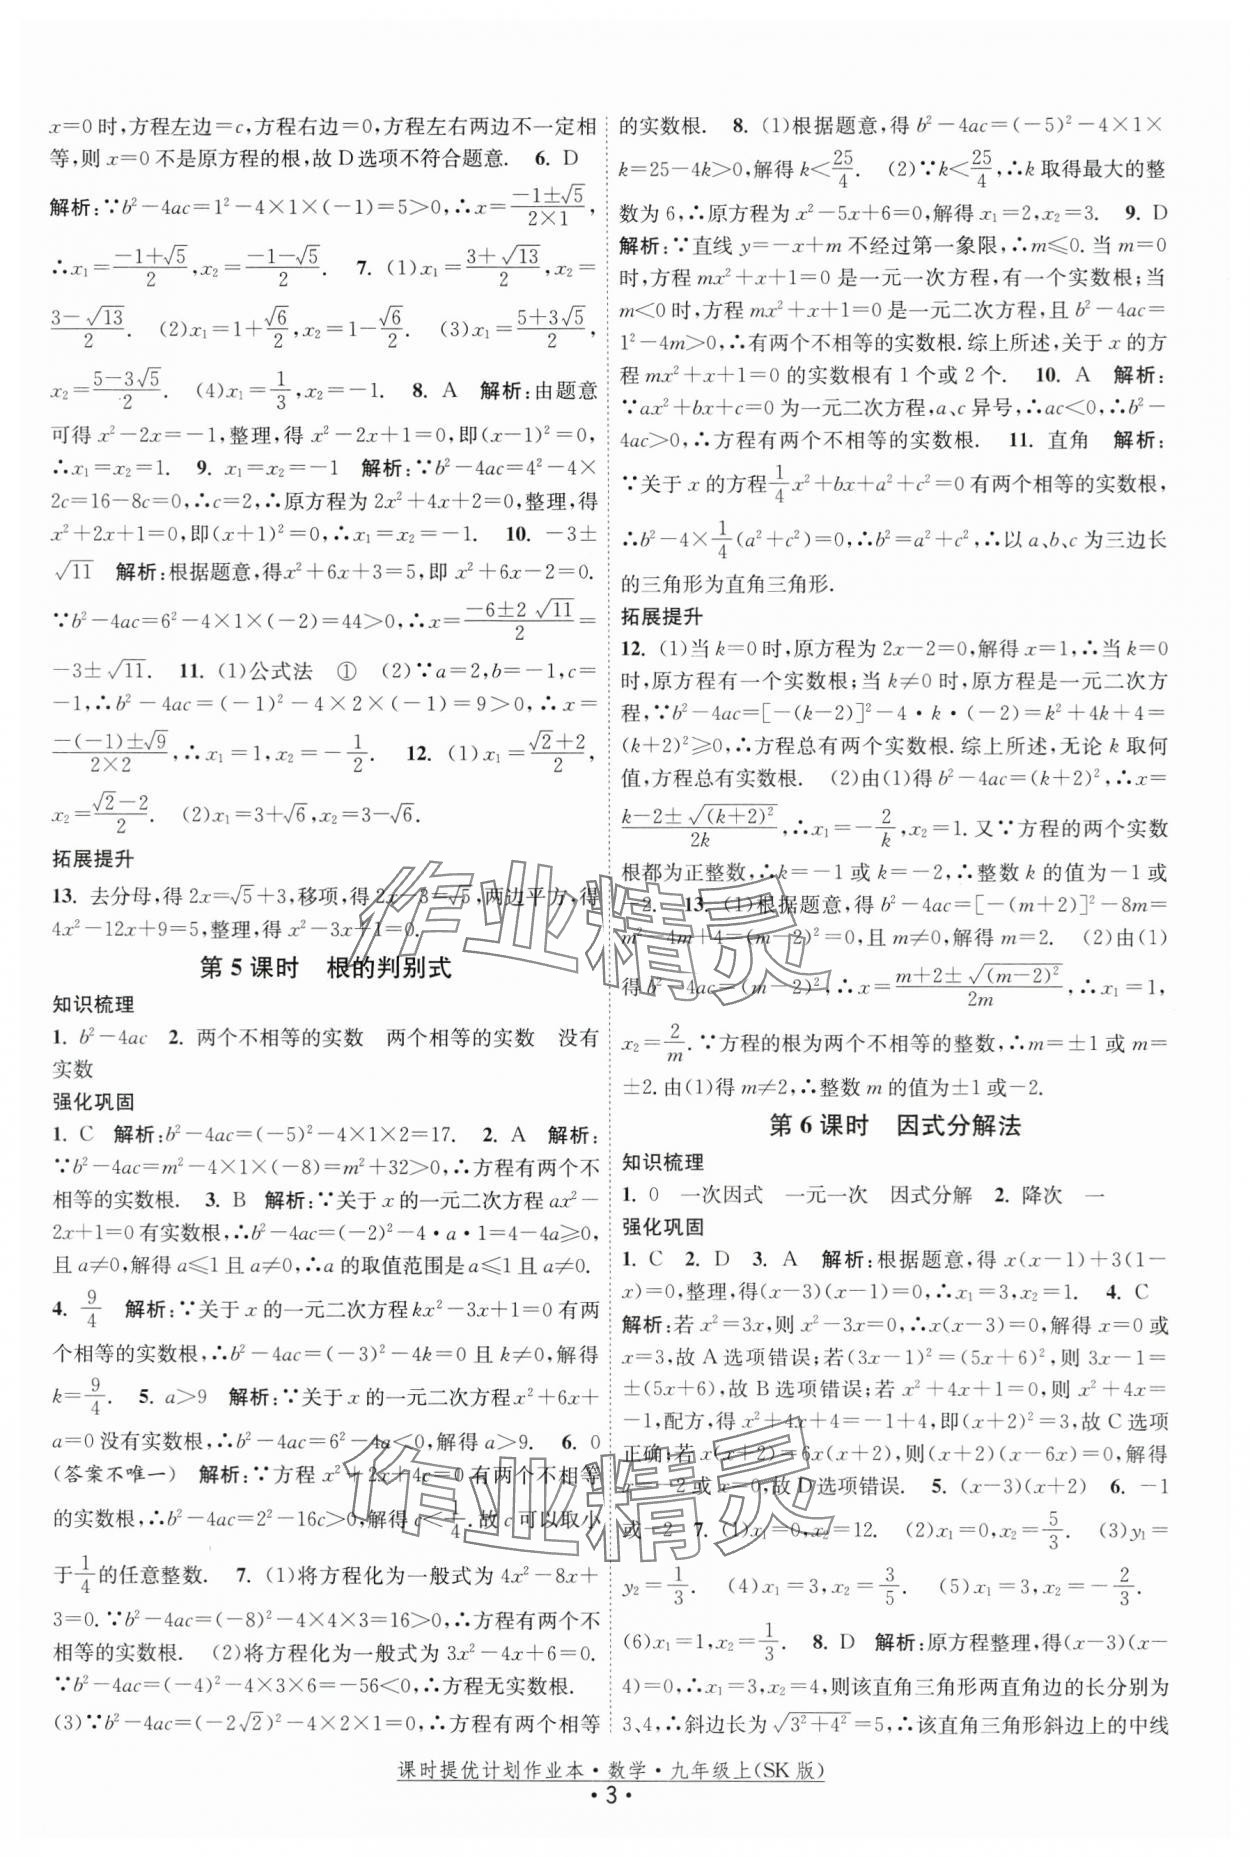 x=0时,方程左边=c,方程右边=0,方程左右两边不一定相
等,则 x=0 不是原方程的根,故 D 选项不符合题意. 6. D
解析:∵b²-4ac=1²-4×1×(-1)=5>0,∴x=(-1±√5)/(2×1),
∴x₁=(-1+√5)/2,x₂=(-1-√5)/2. 7. (1)x₁=(3+√13)/2,x₂=
(3-√13)/2. (2)x₁=1+√6/2,x₂=1-√6/2. (3)x₁=(5+3√5)/2,
x₂=(5-3√5)/2. (4)x₁=1/3,x₂=-1. 8. A 解析:由题意
可得 x²-2x=-1,整理,得 x²-2x+1=0,即(x-1)²=0,
∴x₁=x₂=1. 9. x₁=x₂=-1 解析:∵b²-4ac=4²-4×
2c=16-8c=0,∴c=2,∴原方程为 2x²+4x+2=0,整理,得
x²+2x+1=0,即(x+1)²=0,∴x₁=x₂=-1. 10. -3±
√11 解析:根据题意,得x²+6x+3=5,即 x²+6x-2=0.
∵b²-4ac=6²-4×1×(-2)=44>0,∴x=(-6±2√11)/2=
-3±√11. 11. (1)公式法 ① (2)∵a=2,b=-1,c=
-1,∴b²-4ac=(-1)²-4×2×(-1)=9>0,∴x=
(-(-1)±√9)/(2×2),∴x₁=1,x₂=-1/2. 12. (1)x₁=(√2+2)/2,
x₂=(√2-2)/2. (2)x₁=3+√6,x₂=3-√6.
拓展提升
13. 去分母,得 2x=√5+3,移项,得 2x-3=√5,两边平方,得
4x²-12x+9=5,整理,得 x²-3x+1=0.
第 5 课时 根的判别式
知识梳理
1. b²-4ac 2. 两个不相等的实数 两个相等的实数 没有
实数
强化巩固
1. C 解析:b²-4ac=(-5)²-4×1×2=17. 2. A 解析:
∵b²-4ac=m²-4×1×(-8)=m²+32>0,∴方程有两个不
相等的实数根. 3. B 解析:∵关于 x 的一元二次方程 ax²-
2x+1=0 有实数根,∴b²-4ac=(-2)²-4·a·1=4-4a≥0,
且 a≠0,解得 a≤1 且 a≠0,∴a 的取值范围是 a≤1 且 a≠0.
4. 9/4 解析:∵关于 x 的一元二次方程 kx²-3x+1=0 有两
个相等的实数根,∴b²-4ac=(-3)²-4k=0 且 k≠0,解得
k=9/4. 5. a>9 解析:∵关于 x 的一元二次方程 x²+6x+
a=0 没有实数根,∴b²-4ac=6²-4a<0,解得 a>9. 6. 0
(答案不唯一) 解析:∵方程 x²+2x+4c=0 有两个不相等
的实数根,∴b²-4ac=2²-16c>0,解得 c<1/4.故 c 可以取小
于1/4的任意整数. 7. (1)将方程化为一般式为 4x²-8x+
3=0.∵b²-4ac=(-8)²-4×4×3=16>0,∴方程有两个不
相等的实数根. (2)将方程化为一般式为 3x²-4x+6=0.
∵b²-4ac=(-4)²-4×3×6=-56<0,∴方程无实数根.
(3)∵b²-4ac=(-2√2)²-4×2×1=0,∴方程有两个相等
的实数根. 8. (1)根据题意,得 b²-4ac=(-5)²-4×1×
k=25-4k>0,解得 k<25/4. (2)∵k<25/4,∴k 取得最大的整
数为 6,∴原方程为 x²-5x+6=0,解得 x₁=2,x₂=3. 9. D
解析:∵直线 y=-x+m 不经过第一象限,∴m≤0. 当 m=0
时,方程 mx²+x+1=0 是一元一次方程,有一个实数根;当
m<0 时,方程 mx²+x+1=0 是一元二次方程,且 b²-4ac=
1²-4m>0,∴有两个不相等的实数根.综上所述,关于 x 的方
程 mx²+x+1=0 的实数根有 1 个或 2 个. 10. A 解析:
∵ax²+bx+c=0 为一元二次方程,a、c 异号,∴ac<0,∴b²-
4ac>0,∴方程有两个不相等的实数根. 11. 直角 解析:
∵关于 x 的方程1/4x²+bx+a²+c²=0 有两个相等的实数根,
∴b²-4×1/4(a²+c²)=0,∴b²=a²+c²,∴以 a、b、c 为三边长
的三角形为直角三角形.
拓展提升
12. (1)当 k=0 时,原方程为 2x-2=0,解得 x=1,∴当 k=0
时,原方程有一个实数根;当 k≠0 时,原方程是一元二次方
程,∵b²-4ac=[-(k-2)]²-4·k·(-2)=k²+4k+4=
(k+2)²≥0,∴方程总有两个实数根. 综上所述,无论 k 取何
值,方程总有实数根. (2)由(1)得 b²-4ac=(k+2)²,∴x=
(k-2±√(k+2)²)/2k,∴x₁=-2/k,x₂=1.又∵方程的两个实数
根都为正整数,∴k=-1 或 k=-2,∴整数 k 的值为-1 或
-2. 13. (1)根据题意,得 b²-4ac=[-(m+2)]²-8m=
m²-4m+4=(m-2)²=0,且 m≠0,解得 m=2. (2)由(1)
得 b²-4ac=(m-2)²,∴x=(m+2±√(m-2)²)/2m,∴x₁=1,
x₂=2/m.∵方程的根为两个不相等的整数,∴m=±1 或 m=
±2.由(1)得 m≠2,∴整数 m 的值为±1 或-2.
第 6 课时 因式分解法
知识梳理
1. 0 一次因式 一元一次 因式分解 2. 降次 一
强化巩固
1. C 2. D 3. A 解析:根据题意,得 x(x-1)+3(1-
x)=0,整理,得(x-3)(x-1)=0,∴x₁=3,x₂=1. 4. C
解析:若 x²=3x,则 x²-3x=0,∴x(x-3)=0,解得 x=0 或
x=3,故 A 选项错误;若(3x-1)²=(5x+6)²,则 3x-1=
±(5x+6),故 B 选项错误;若 x²+4x+1=0,则 x²+4x=
-1,配方,得 x²+4x+4=-1+4,即(x+2)²=3,故 C 选项
正确;若 x(x+2)=6x(x+2),则(x+2)(x-6x)=0,解得
x=-2 或 x=0,故 D 选项错误. 5. (x-3)(x+2) 6. -1
或-2 7. (1)x₁=0,x₂=12. (2)x₁=0,x₂=5/3. (3)y₁=1,
y₂=1/3. (4)x₁=3,x₂=3/5. (5)x₁=3,x₂=-2/3.
(6)x₁=1,x₂=1/3. 8. D 解析:原方程整理,得(x-3)(x-
4)=0,∴x₁=3,x₂=4,则该直角三角形两直角边的长分别为
3、4,∴斜边长为√3²+4²=5,∴该直角三角形斜边上的中线
课时提优计划作业本·数学·九年级上(SK 版)
·3·
作业精灵
作业精灵